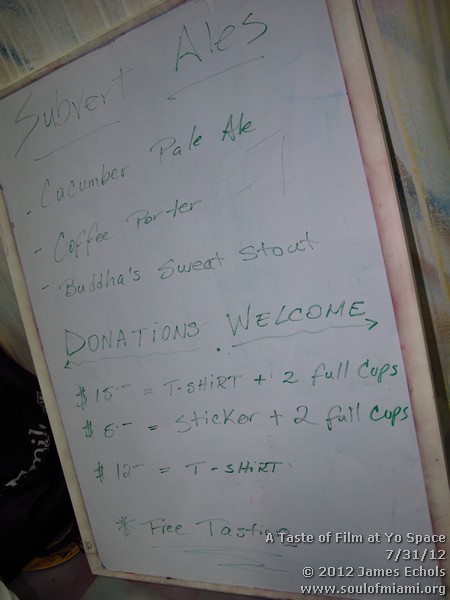 Subvert Ales
- Cucumber Pale Ale
- Coffee Porter
- Buddha's Sweat Stout
DONATIONS WELCOME
$15.- = T-SHiRT + 2 full Cups
$8.- = Sticker + 2 full Cups
$12- = T-SHiRT
* Free Tasting
A Taste of Film at Yo Space
7/31/12
© 2012 James Echols
www.soulofmiami.org